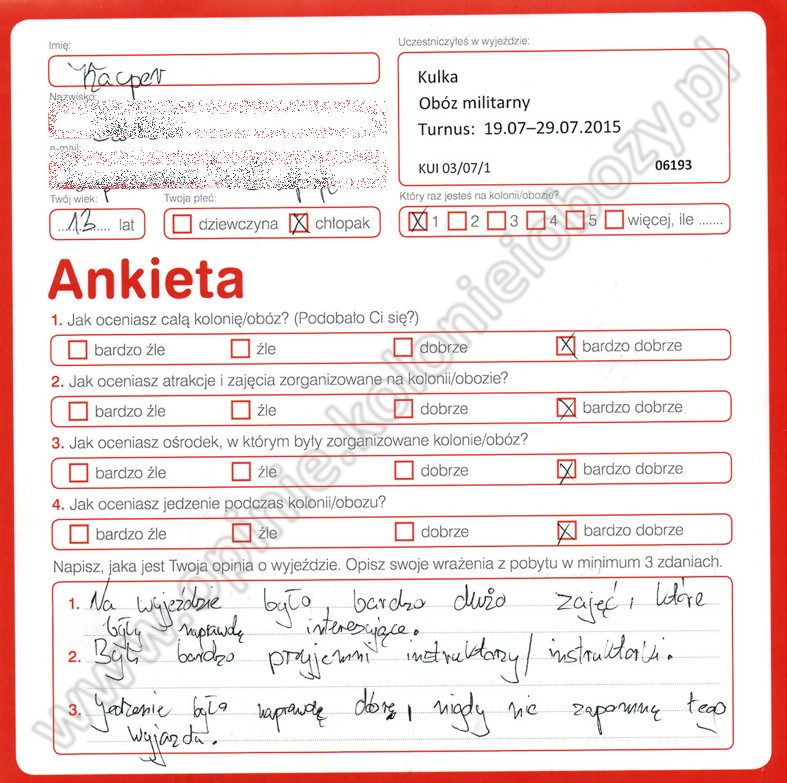 Imię:
Kacper
Nazwisko:
e-mail:
Twój wiek:
13 lat
Twoja płeć:
dziewczyna chłopak
Uczestniczyłeś w wyjeździe:
Kulka
Obóz militarny
Turnus: 19.07–29.07.2015
KUI 03/07/1 06193
Który raz jesteś na kolonii/obozie?
1 2 3 4 5 więcej, ile .......
Ankieta
1. Jak oceniasz całą kolonię/obóz? (Podobało Ci się?)
bardzo źle źle dobrze bardzo dobrze
2. Jak oceniasz atrakcje i zajęcia zorganizowane na kolonii/obozie?
bardzo źle źle dobrze bardzo dobrze
3. Jak oceniasz ośrodek, w którym były zorganizowane kolonie/obóz?
bardzo źle źle dobrze bardzo dobrze
4. Jak oceniasz jedzenie podczas kolonii/obozu?
bardzo źle źle dobrze bardzo dobrze
Napisz, jaka jest Twoja opinia o wyjeździe. Opisz swoje wrażenia z pobytu w minimum 3 zdaniach.
1. Na wyjeździe było bardzo dużo zajęć, które
były naprawdę interesujące.
2. Byli bardzo przyjemni instruktorzy/instruktorki.
3. Jedzenie było naprawdę dobre, nigdy nie zapomnę tego
wyjazdu.
www.opinie.kolonieiobozy.pl